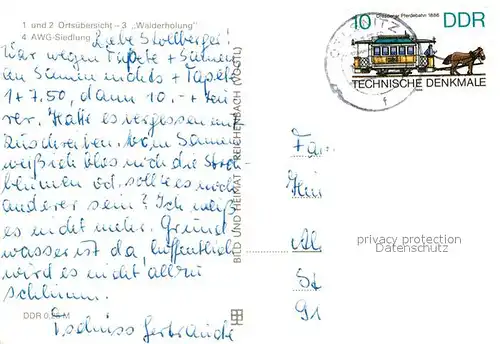 1 und 2 Ortsübersicht – 3 „Walderholung"
4 AWG-Siedlung
Liebe Stollberger!
War wegen Tapete + Samen
an Samen nichts + Tapet
1 + 7.50, dann 10.- + teu
rer. Hatte es vergessen mit
zuschreiben. beim Samen
weiß ich blos nich die Stroh
blumen od. sollte es noch
anderer sein? Ich weiß
es nicht mehr. Grund
wasser ist da, hoffentlich
wird es nicht allzu
schlimm.
Tschüss Gerbrande
DDR 0,25 M
BILD UND HEIMAT REICHENBACH (VOGTL)
Dresdener Pferdebahn 1886
10 DDR
TECHNISCHE DENKMALE
Fam.
Hein
Al
St
91
privacy protection
Datenschutz